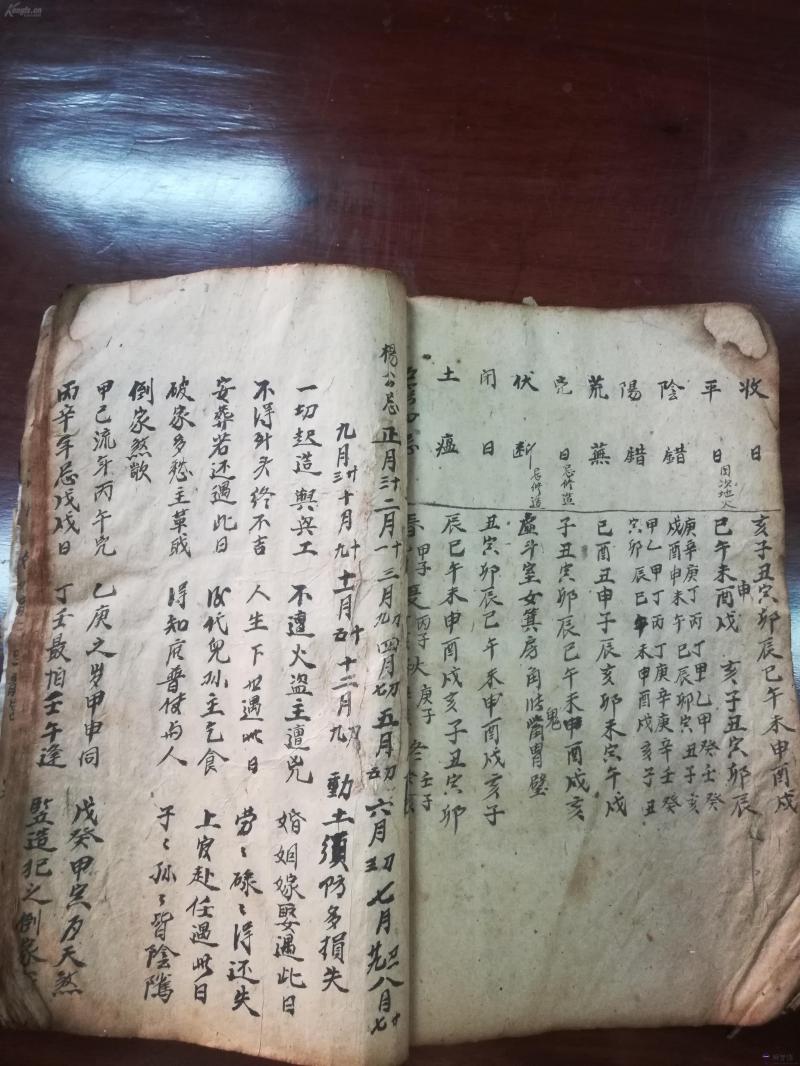 收日 亥子丑寅卯辰巳午未申酉戌
平日 巳午未申酉戌 亥子丑寅卯辰
陰錯 庚辛庚丁丙丁甲乙甲癸壬癸
戌酉申未午巳辰卯寅丑子亥
陽錯 甲乙甲丁丙丁庚辛庚辛壬癸
寅卯辰巳午未申酉戌亥子丑
荒蕪 巳酉丑申子辰亥卯未寅午戌
日 忌修造 子丑寅卯辰巳午未申酉戌亥
伏断 忌修造 虛斗室女箕房角張鬼觜胃壁
閉日 丑寅卯辰巳午未申酉戌亥子
土瘟 辰巳午未申酉戌亥子丑寅卯
甲子 丙子 庚子 壬子
楊公忌 正月十三 二月十一 三月初九 四月初七 五月初五 六月初三 七月初一廿九 八月廿七
九月廿五 十月 十一月 十二月十九 動土須防多損失
一切起造與興工 不遭火盜主遭兇 婚姻嫁娶遇此日
不得到头终不吉 人生下世遇此日 劳々碌々得还失
安葬若还遇此日 後代兒孫主乞食 上官赴任遇此日
破家多愁主草賊 得知废普使与人 子々孫々皆陰隲
倒家煞歌
甲己流年丙午兇 乙庚之岁甲申同 戊癸甲寅为天煞
丙辛年忌戊戌日 丁壬最怕壬午逢 監造犯之倒家